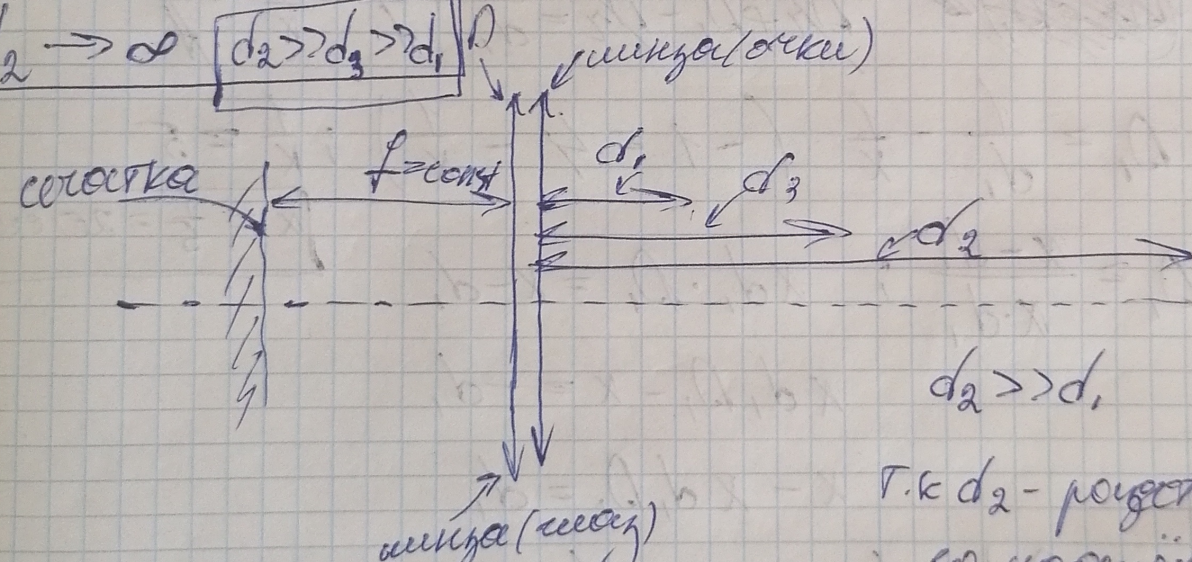 2 → ∞ d₂>>d₃>>d₁ D
линза(очки)
сетчатка
f=const
d₁
d₃
d₂
d₂>>d₁
т.к d₂ -
линза(глаз)